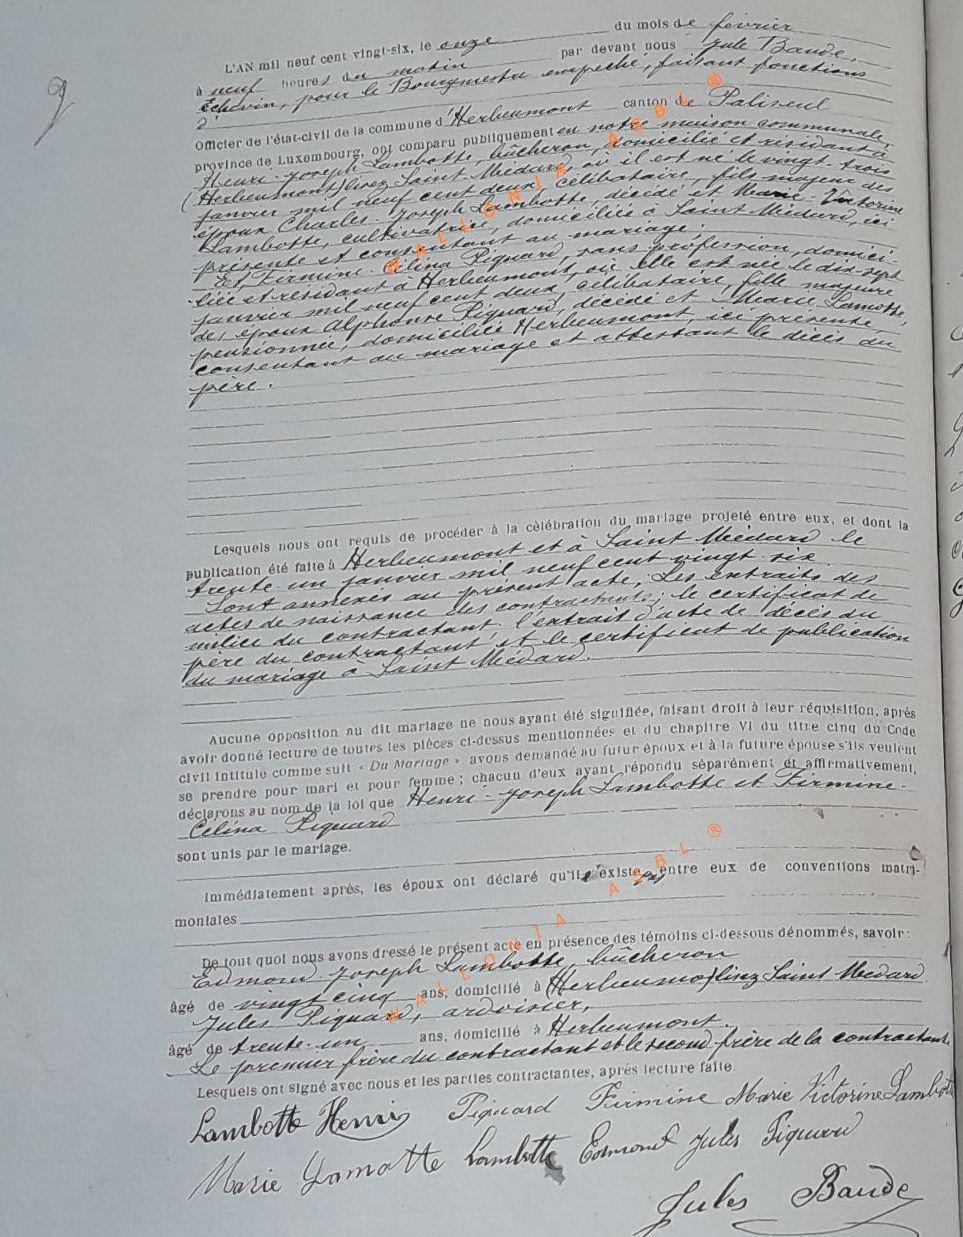 9
L'AN mil neuf cent vingt-six, le onze du mois de février
à neuf heures du matin par devant nous Jule Baude,
Echevin, pour le Bourgmestre empeché, faisant fonctions
d'
Officier de l'état-civil de la commune d'Herbeumont canton de Paliseul
province de Luxembourg, ont comparu publiquement en notre maison communale,
Henri-Joseph Lambotte, bûcheron, domicilié et résidant à
(Herbeumont) lisez Saint Médard, où il est né le vingt trois
janvier mil neuf cent deux, célibataire, fils majeur des
époux Charles-Joseph Lambotte, décédé et Marie-Victorine
Lambotte, cultivatrice, domiciliée à Saint Médard, ici
présente et consentant au mariage;
Et Firmine Célina Piquard, sans profession, domici-
liée et résidant à Herbeumont, où elle est née le dix-sept
janvier mil neuf cent deux, célibataire, fille majeure
des époux Alphonse Piquard, décédé et Marie Lamotte,
pensionnée, domiciliée Herbeumont ici présente
consentant au mariage et attestant le décès du
père.
Lesquels nous ont requis de procéder à la célébration du mariage projeté entre eux, et dont la
publication été faite à Herbeumont et à Saint Médard le
trente un janvier mil neuf cent vingt-six
Sont annexés au présent acte; Les extraits des
actes de naissance des contractants; le certificat de
milice du contractant, l'extrait d'acte de décès du
père du contractant et le certificat de publication
du mariage à Saint Médard.
Aucune opposition au dit mariage ne nous ayant été signifiée, faisant droit à leur réquisition, après
avoir donné lecture de toutes les pièces ci-dessus mentionnées et du chapitre VI du titre cinq du Code
civil intitulé comme suit « Du Mariage » avons demandé au futur époux et à la future épouse s'ils veulent
se prendre pour mari et pour femme; chacun d'eux ayant répondu séparément et affirmativement,
déclarons au nom de la loi que Henri-Joseph Lambotte et Firmine-
Célina Piquard
sont unis par le mariage.
Immédiatement après, les époux ont déclaré qu'il n'existe pas entre eux de conventions matri-
moniales
De tout quoi nous avons dressé le présent acte en présence des témoins ci-dessous dénommés, savoir:
Edmond Joseph Lambotte, bûcheron
âgé de vingt cinq ans, domicilié à (Herbeumont) lisez Saint Médard
Jules Piquard, ardoisier,
âgé de trente-un ans, domicilié à Herbeumont.
Le premier frère du contractant et le second frère de la contractante
Lesquels ont signé avec nous et les parties contractantes, après lecture faite
Lambotte Henri Piquard Firmine Marie Victorine Lambotte
Marie Lamotte Lambotte Edmond Jules Piquard
Jules Baude
WALLONIA ASBL ®
WALLONIA ASBL ®